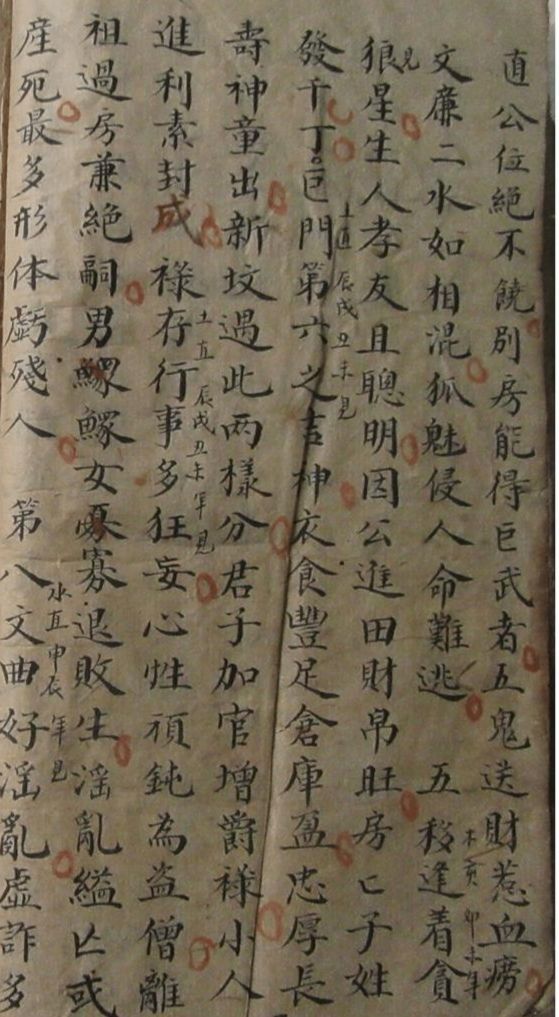 直公位絕不饒別房能得巨武者五鬼送財惹血癆
文廉二水如相混狐魅侵人命難逃 五移逢着貪
木亥卯未年
見
狼星生人孝友且聰明因公進田財帛旺房亡子姓
發千丁巨門第六之吉神衣食豐足倉庫盈忠厚長
土直辰戌丑未見
壽神童出新坟過此两樣分君子加官增爵祿小人
進利素封成 祿存行事多狂妄心性頑鈍為盗僧離
土直辰戌丑未年見
祖過房兼絕嗣男鰥鰥女寡退敗生淫亂縊亡或
産死最多形体虧殘人 第八文曲好淫亂虚詐多
水直申辰年見